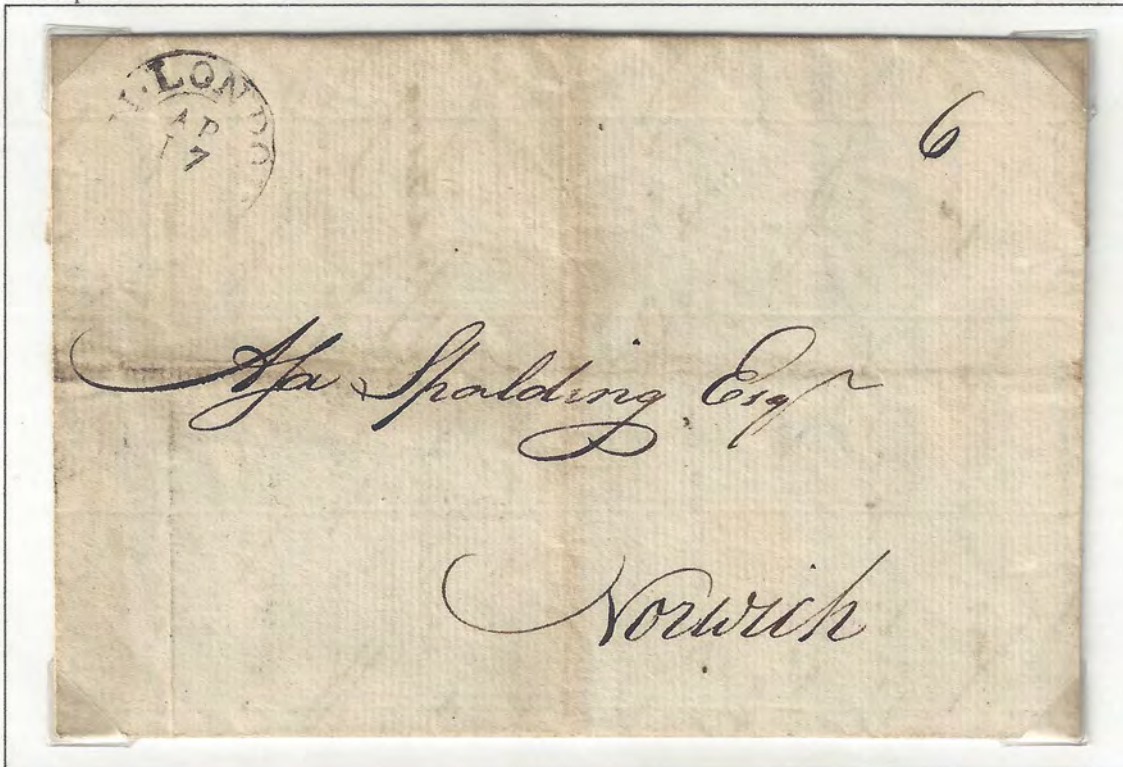 N·LONDO
AP
17
6
Asa Spalding Esqr
Norwich